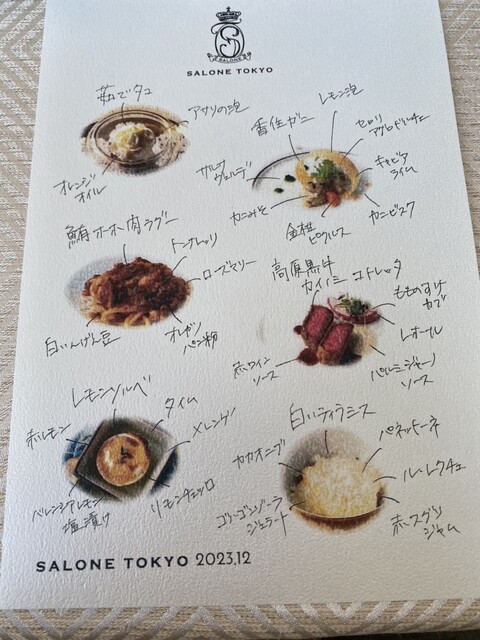 SALONE
SALONE TOKYO
茹でダコ
アサリの泡
オレンジ
オイル
レモン泡
香住ガニ
セロリ
アグロドルチェ
サルサ
ヴェルデ
キャビア
ライム
カニみそ
金柑
ピクルス
カニビスク
鮪ホホ肉ラグー
トンナレッリ
ローズマリー
白いんげん豆
オレガノ
パン粉
高原黒牛
カイノミ コトレッタ
もものすけ
カブ
レホール
赤ワイン
ソース
パルミジャーノ
ソース
レモンソルベ
タイム
赤レモン
メレンゲ
バレンシアレモン
塩漬け
リモンチェッロ
白いティラミス
カカオニブ
パネットーネ
ル・レクチェ
ゴルゴンゾーラ
ジェラート
赤スグリ
ジャム
SALONE TOKYO 2023.12